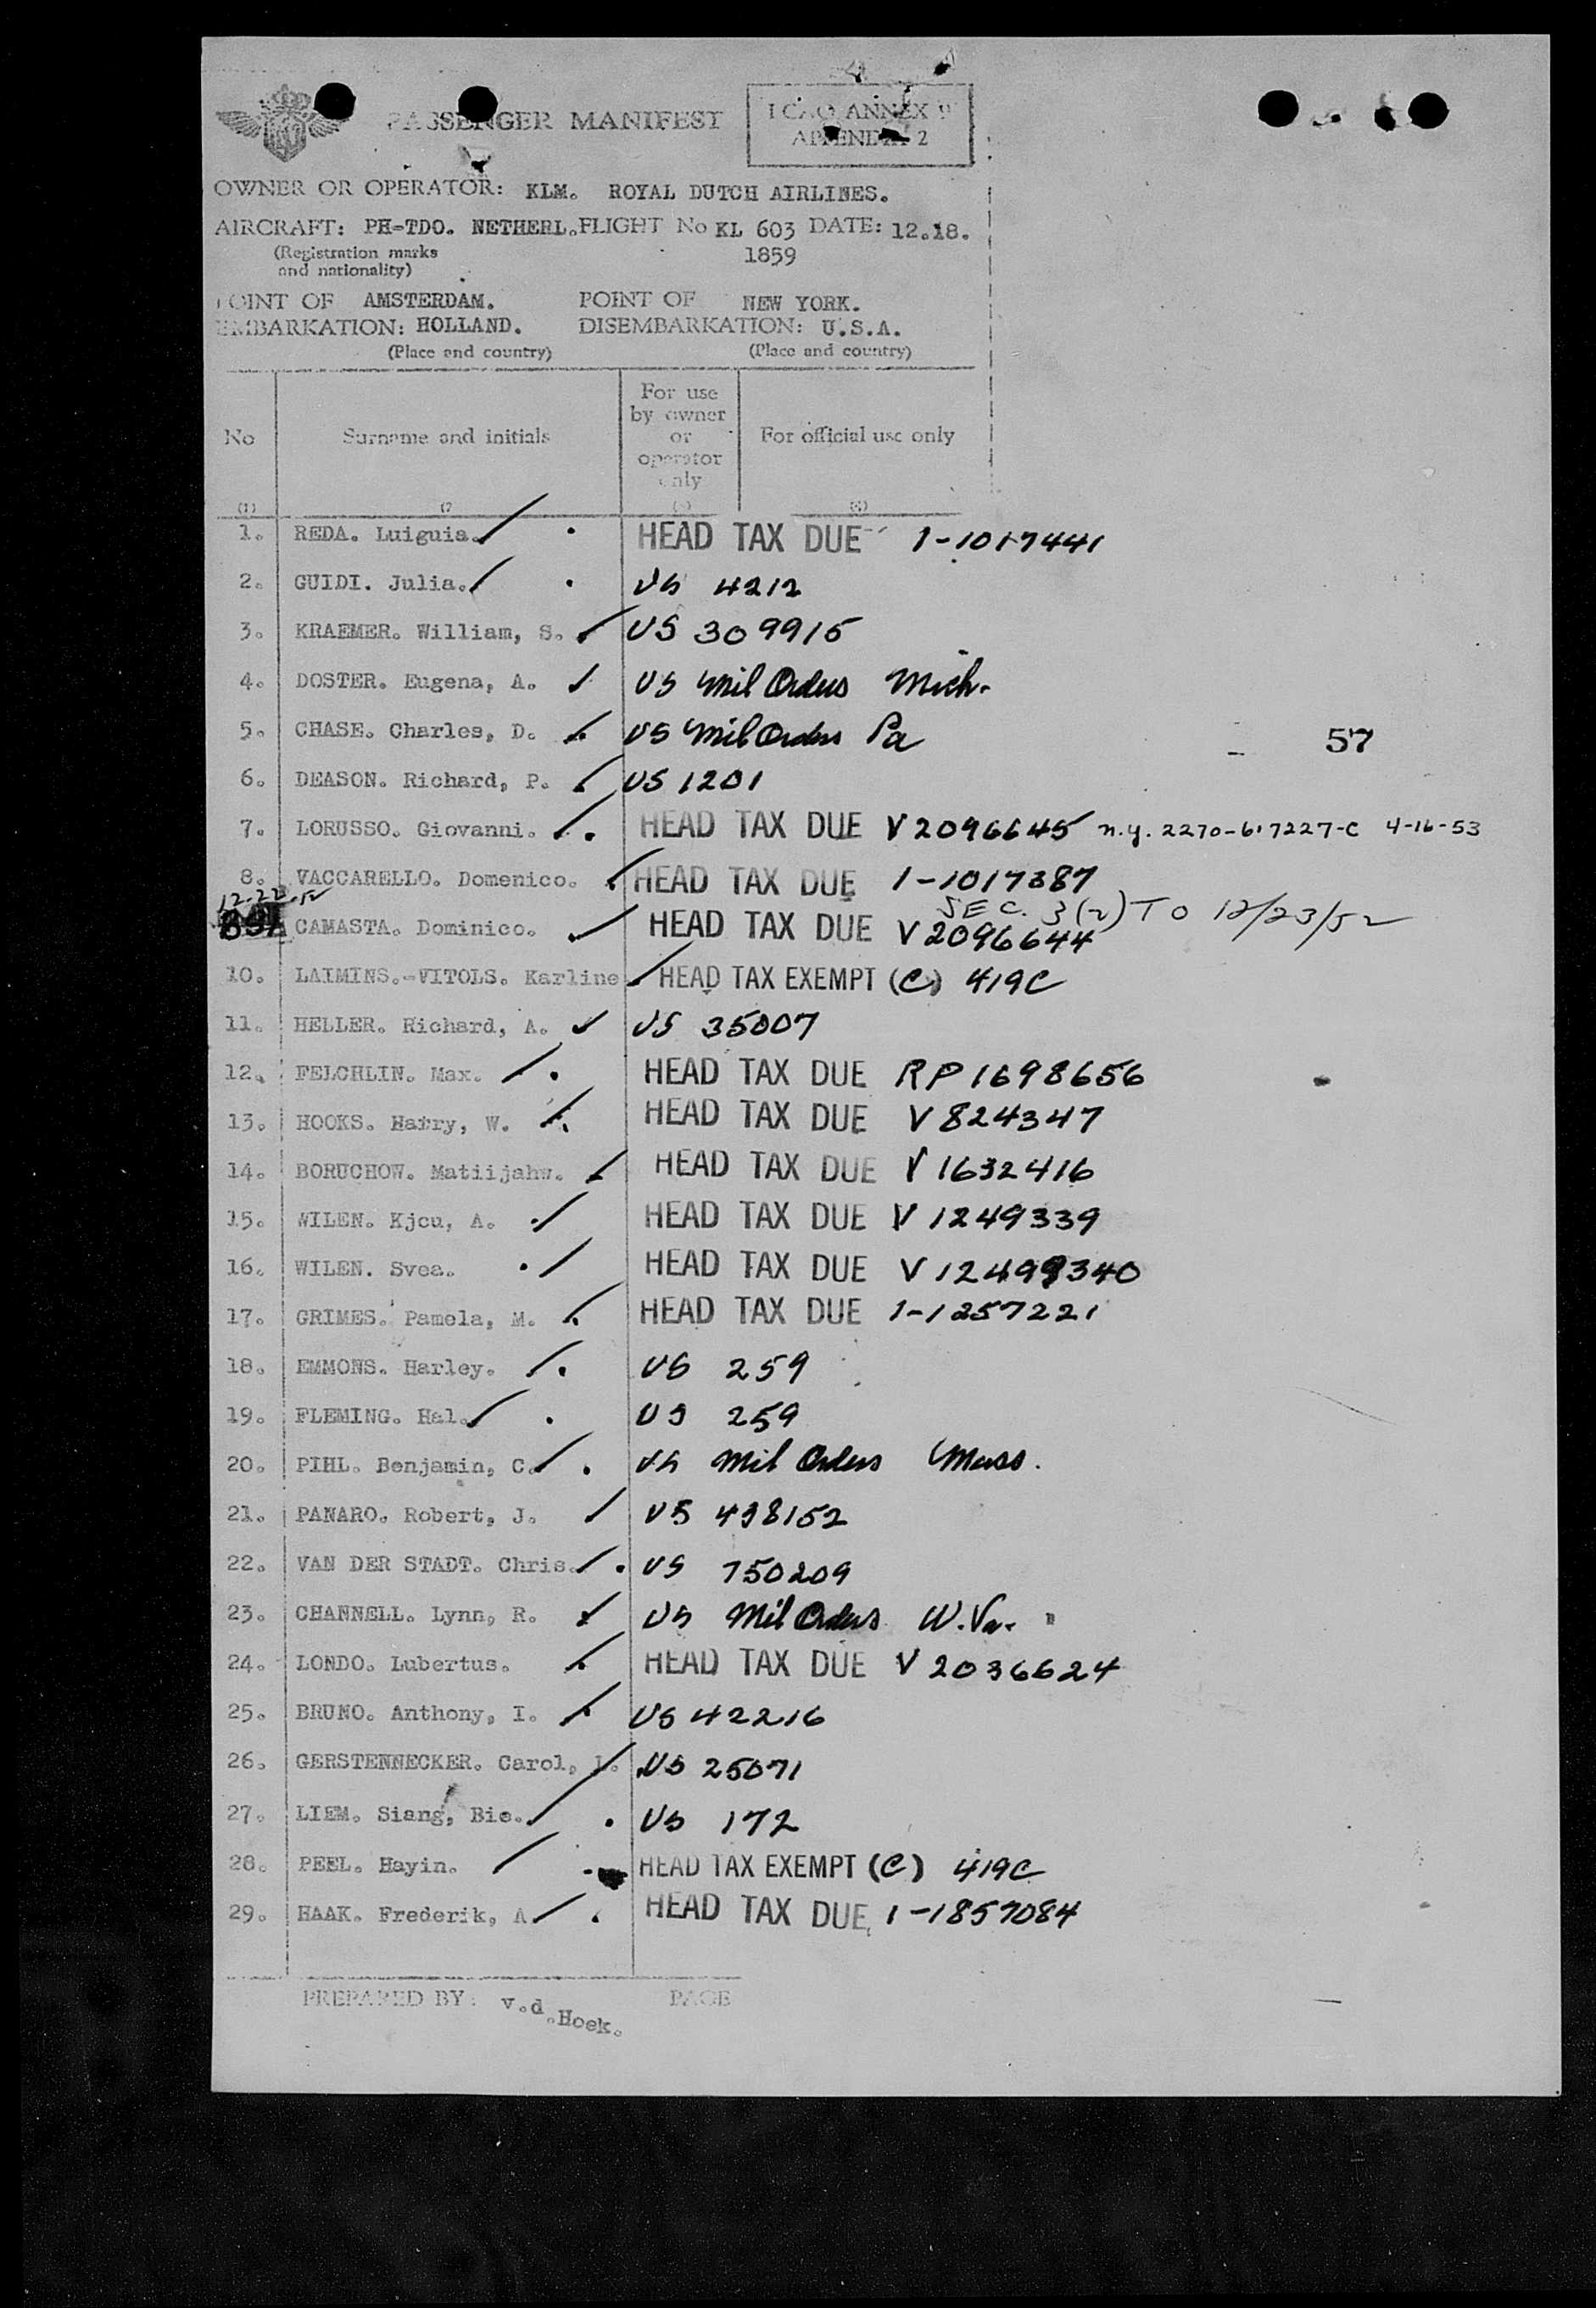 PASSENGER MANIFEST
ICAO ANNEX 9
APPENDIX 2
OWNER OR OPERATOR: KLM. ROYAL DUTCH AIRLINES.
AIRCRAFT: PH-TDO. NETHERL. FLIGHT No KL 603 DATE: 12.18.
(Registration marks 1859
and nationality)
POINT OF AMSTERDAM. POINT OF NEW YORK.
EMBARKATION: HOLLAND. DISEMBARKATION: U.S.A.
(Place and country) (Place and country)
No Surname and initials For use by owner or operator only For official use only
(1)
1. REDA. Luiguia. HEAD TAX DUE 1-1017441
2. GUIDI. Julia. US 4212
3. KRAEMER. William, S. US 309915
4. DOSTER. Eugena, A. US Mil Orders Mich.
5. CHASE. Charles, D. US Mil Orders Pa
57
6. DEASON. Richard, P. US 1201
7. LORUSSO. Giovanni. HEAD TAX DUE V2096645 n.y. 2270-617227-C 4-16-53
8. VACCARELLO. Domenico. HEAD TAX DUE 1-1017387
12-22-52 SEC. 3(2) TO 12/23/52
CAMASTA. Dominico. HEAD TAX DUE V2096644
10. LAIMINS.-VITOLS. Karline HEAD TAX EXEMPT (C) 419C
11. HELLER. Richard, A. US 35007
12. FELCHLIN. Max. HEAD TAX DUE RP1698656
13. HOOKS. Harry, W. HEAD TAX DUE V 824347
14. BORUCHOW. Matiijahw. HEAD TAX DUE V 1632416
15. WILEN. Kjcu, A. HEAD TAX DUE V 1249339
16. WILEN. Svea. HEAD TAX DUE V 12499340
17. GRIMES. Pamela, M. HEAD TAX DUE 1-1257221
18. EMMONS. Harley. US 259
19. FLEMING. Hal. US 259
20. PIHL. Benjamin, C. US Mil Orders Mass.
21. PANARO. Robert, J. US 498152
22. VAN DER STADT. Chris. US 750209
23. CHANNELL. Lynn, R. US Mil Orders W.Va.
24. LONDO. Lubertus. HEAD TAX DUE V 2036624
25. BRUNO. Anthony, I. US 42216
26. GERSTENNECKER. Carol, L. US 25071
27. LIEM. Siang, Bie. US 172
28. PEEL. Hayin. HEAD TAX EXEMPT (C) 419C
29. HAAK. Frederik, A. HEAD TAX DUE 1-1857084
PREPARED BY: v.d.Hoek. PAGE